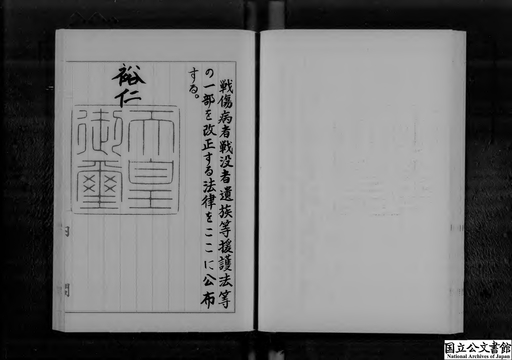 戦傷病者戦没者遺族等援護法等
の一部を改正する法律をここに公布
する。
裕仁
天皇
御璽
国立公文書館
National Archives of Japan